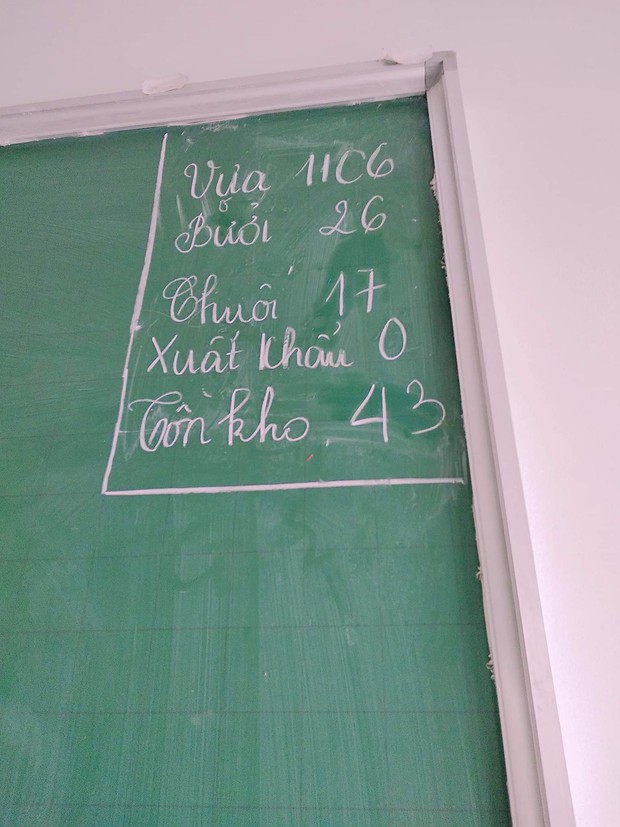 Vựa 11C6
Bưởi 26
Chuối 17
Xuất khẩu 0
Tồn kho 43